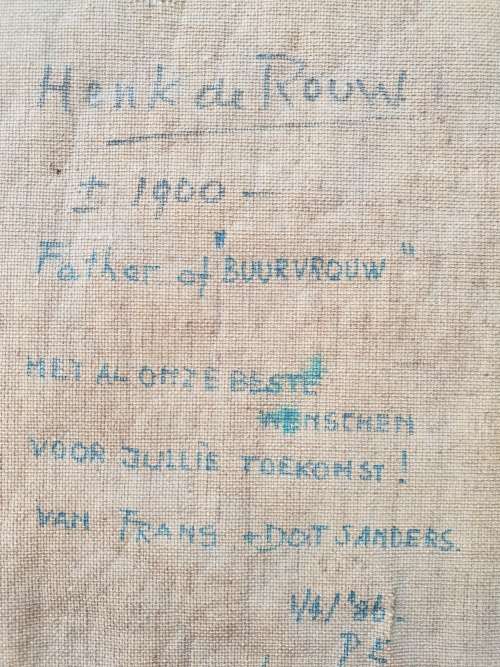 Henk de Rouw
± 1900 —
Father of "BUURVROUW"
MET AL ONZE BESTE
WENSCHEN
VOOR JULLIE TOEKOMST!
VAN FRANS + DOT SANDERS.
1/4/'86.
P E